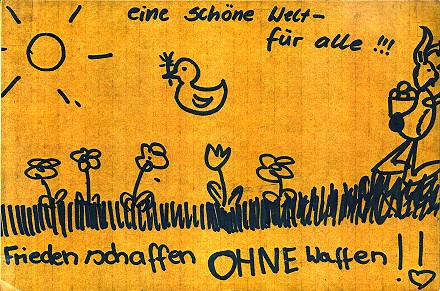 eine schöne Welt-
für alle !!!
Frieden schaffen OHNE Waffen !!